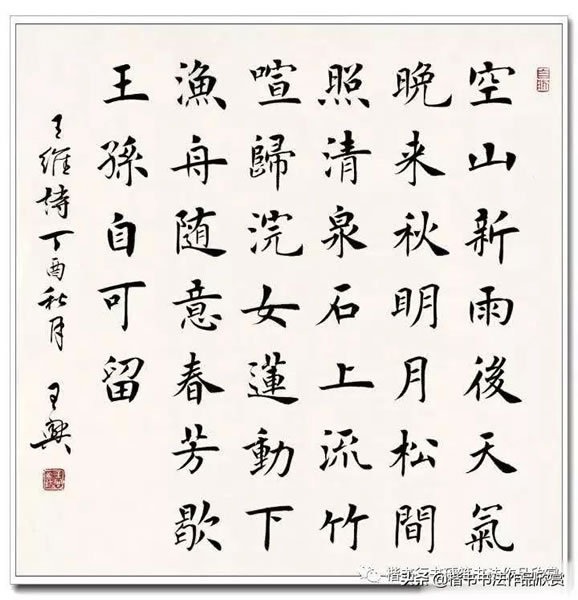 空山新雨後天氣
晚来秋明月松間
照清泉石上流竹
喧歸浣女蓮動下
漁舟随意春芳歇
王孫自可留
王維詩丁酉秋月 王
头条 @楷书书法作品欣赏